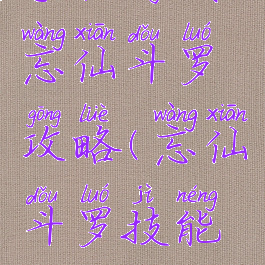 wàng xiān dǒu luó
忘仙斗罗
gōng lüè wàng xiān
攻略(忘仙
dǒu luó jì néng
斗罗技能